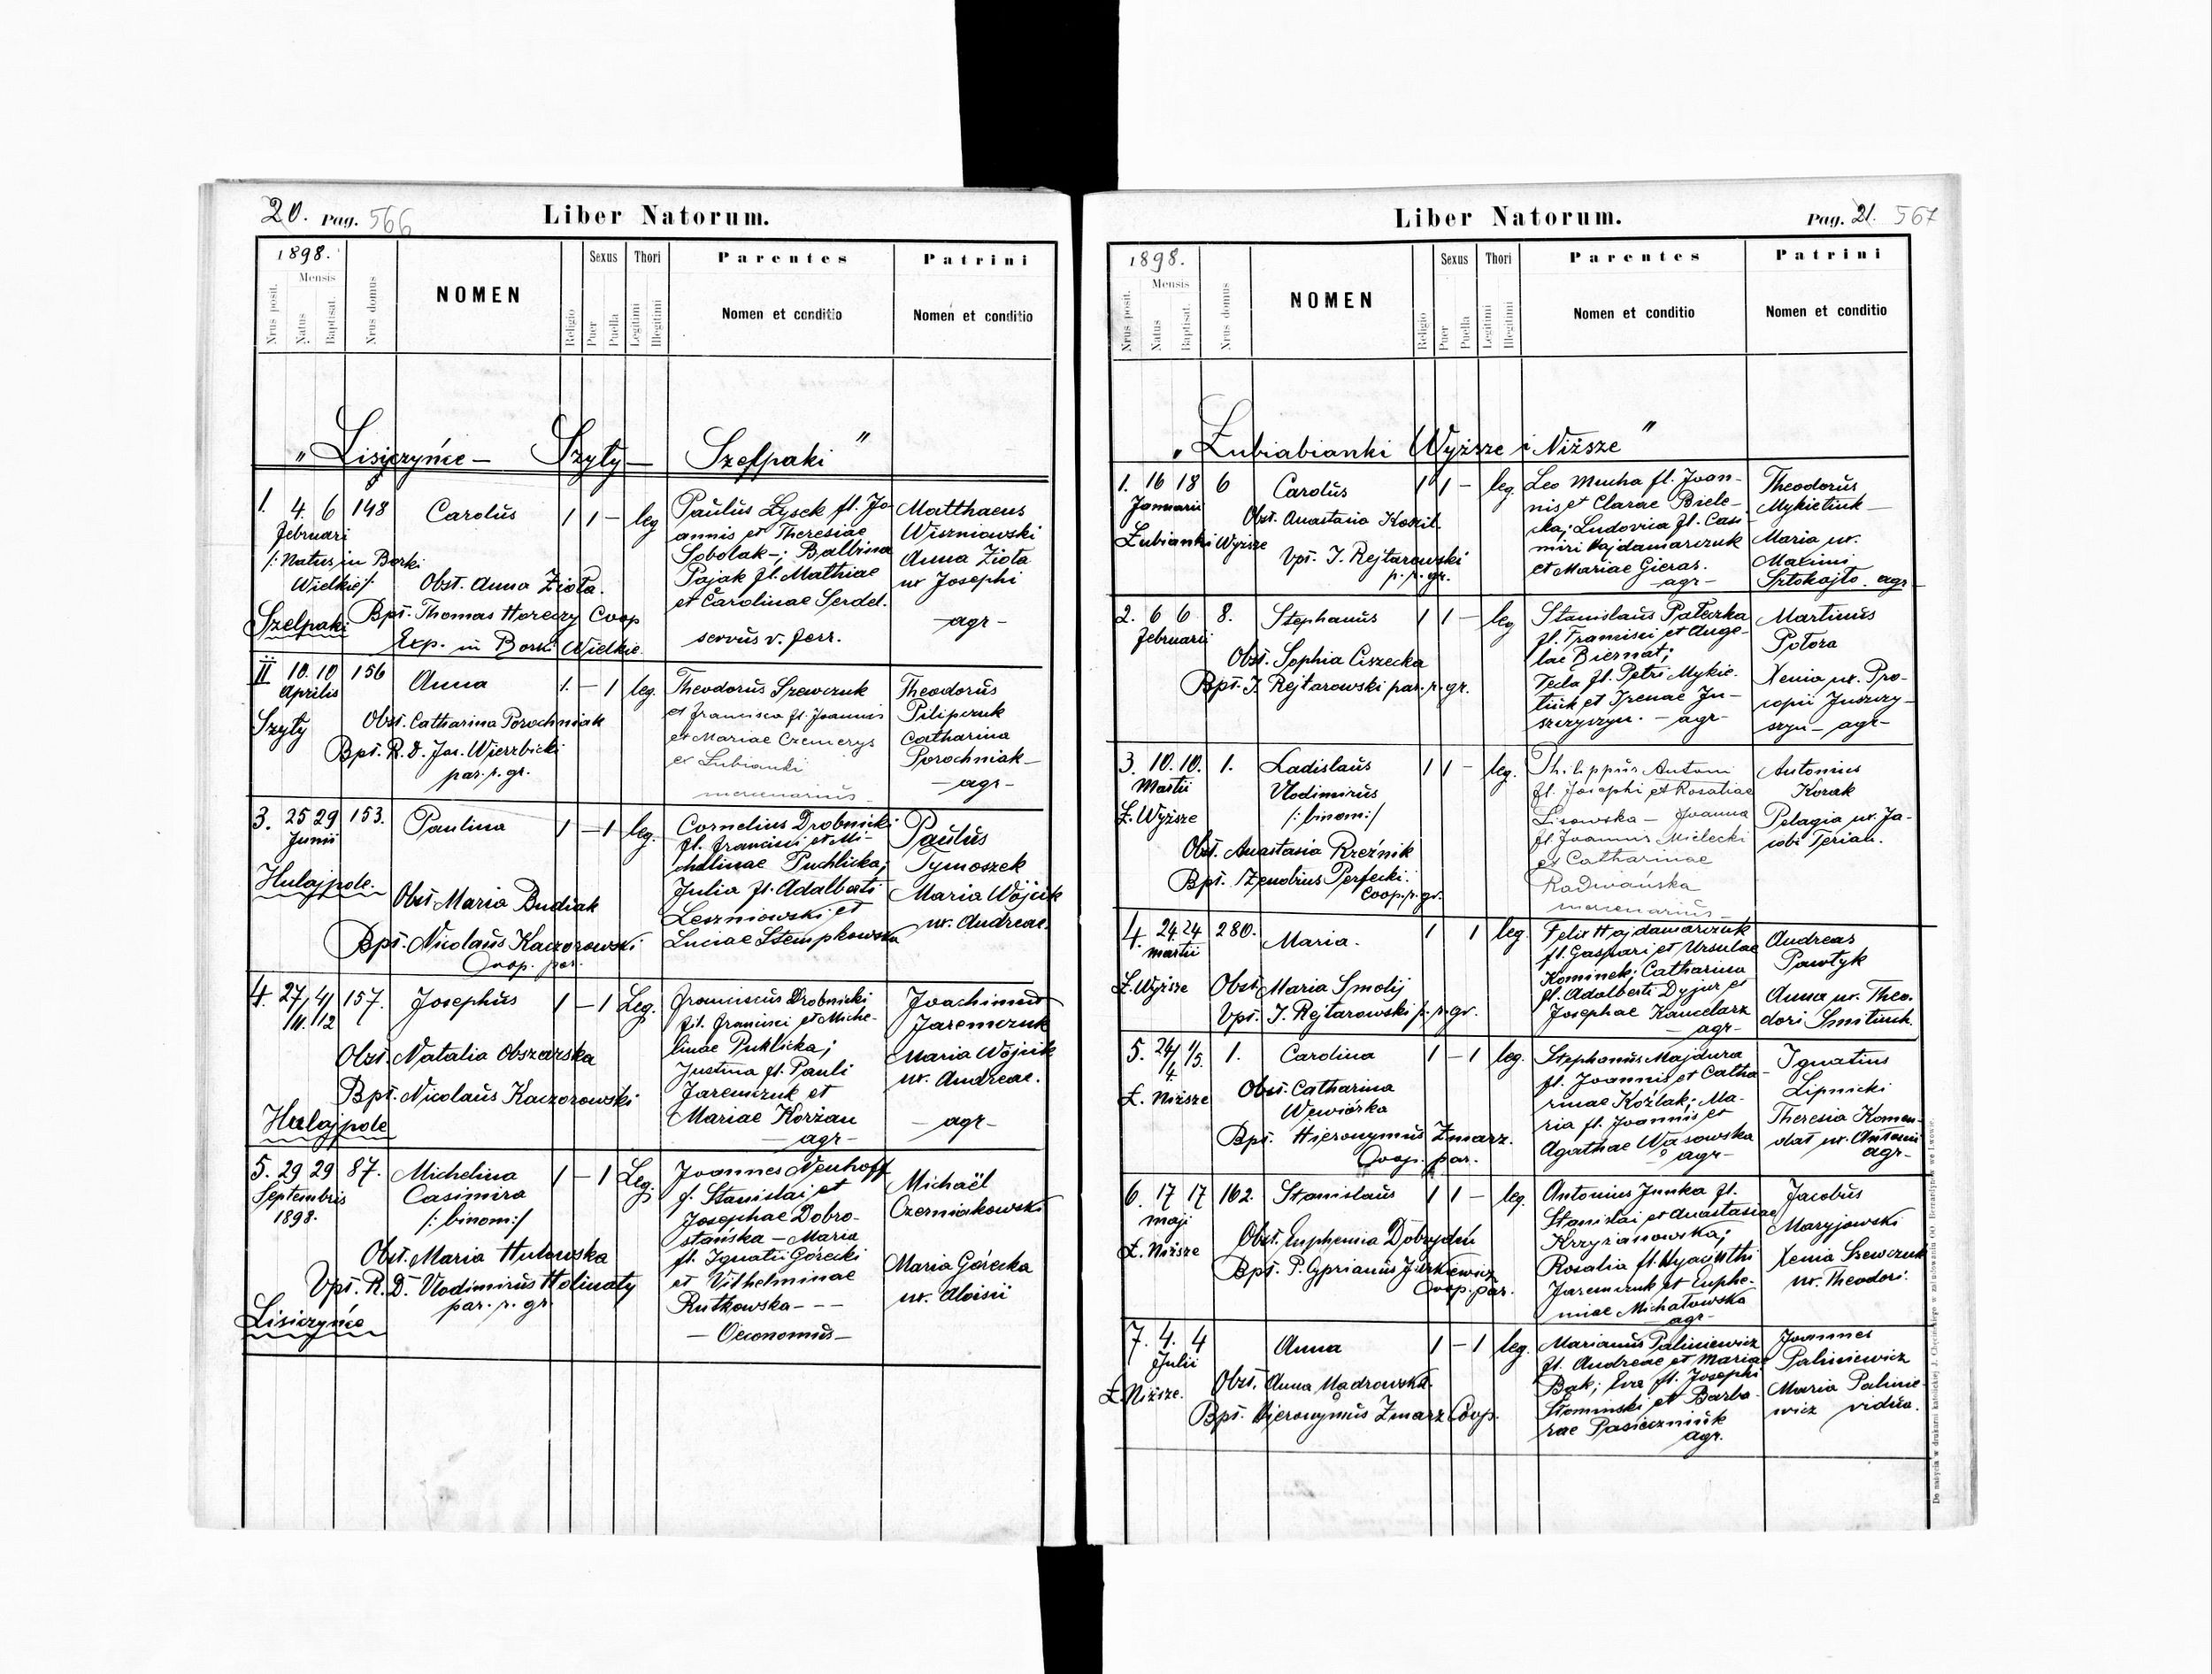 20. Pag. 566
Liber Natorum.
1898.
Mensis
Nrus posit.
Natus
Baptisat.
Nrus domus
NOMEN
Religio
Sexus
Puer
Puella
Thori
Legitimi
Illegitimi
Parentes
Nomen et conditio
Patrini
Nomen et conditio
„Lisiczyńce – Szyły – Szelpaki"
1. 4. 6 148 Carolus 1 1 – leg
Februari
/: Natus in Borki
Wielkie/:
Obst. Anna Zioła.
Bpt. Thomas Horeczy Coop
Szelpaki
Exp. in Borki Wielkie
Paulus Łysek fl. Jo-
annis et Theresiae
Sobolak –; Balbina
Pająk fl. Mathiae
et Carolinae Serdel.
servus v. ferr.
Matthaeus
Wiszniowski
Anna Zioła
ux Josephi
– agr –
II 10. 10 156 Anna 1. – 1 leg.
Aprilis
Szyły
Obst. Catharina Porochniak
Bpt. R. D. Jos. Wierzbicki
par. r. gr.
Theodorus Szewczuk
et Francisca fl. Joannis
et Mariae Czemerys
et Łubianki
mercenarius –
Theodorus
Pilipczuk
Catharina
Porochniak –
– agr –
3. 25 29 153. Paulina 1 – 1 leg.
Junii
Hulajpole.
Obst Maria Budiak
Bpt. Nicolaus Kaczorowski
Coop. par.
Cornelius Drobnicki
fl. Francisci et Mi-
chalinae Puchlicka;
Julia fl. Adalberti
Leszniowski et
Luciae Stempkowska
Paulus
Tymoszek
Maria Wójcik
ux. Andreae.
4. 27/11. 4/12 157. Josephus 1 – 1 Leg.
Obst. Natalia Obszarska
Bpt. Nicolaus Kaczorowski
Hulajpole
Franciscus Drobnicki
fil. Francisci et Miche-
linae Puklicka;
Justina fl. Pauli
Jaremczuk et
Mariae Korżan
– agr –
Joachimus
Jaremczuk
Maria Wójcik
ux. Andreae.
– agr –
5. 29 29 87. Michelina 1 – 1 Leg.
Septembris
1898.
Casimira
/: binom :/
Obst. Maria Hutowska
Vpt. R. D. Vlodimirus Holinaty
par. r. gr.
Lisiczyńce
Joannes Neuhoff
f. Stanislai et
Josephae Dobro-
stańska – Maria
fl. Ignatii Górecki
et Vilhelminae
Rutkowska – – –
– Oeconomus –
Michaël
Czerniakowski
Maria Górecka
ux. Aloisii
Liber Natorum.
Pag. 21. 567
1898.
Mensis
Nrus posit.
Natus
Baptisat.
Nrus domus
NOMEN
Religio
Sexus
Puer
Puella
Thori
Legitimi
Illegitimi
Parentes
Nomen et conditio
Patrini
Nomen et conditio
„Łubiabianki Wyższe i Niższe"
1. 16 18 6 Carolus 1 1 – leg.
Januarii
Łubianki Wyższe
Obst. Anastasia Koszil
Vpt. J. Rejtarowski
p. r. gr.
Leo Mucha fl. Joan-
nis et Clarae Biele-
cka; Ludovica fl. Casi-
miri Hajdamarczuk
et Mariae Gieras.
– agr –
Theodorus
Mykietiuk –
Maria ux.
Maximi
Sztokajło. agr –
2. 6 6 8. Stephanus 1 1 – leg
Februarii
Obst. Sophia Ciszecka
Bpt. J. Rejtarowski par. r. gr.
Stanislaus Pałeczka
fl. Francisci et Ange-
lae Biernat;
Tecla fl. Petri Mykie-
tiuk et Irenae Ju-
szczyszyn. – agr –
Martinus
Potora
Xenia ux. Pro-
copii Juszczy-
szyn – agr –
3. 10. 10. 1. Ladislaus 1 1 – leg.
Martii
Ł. Wyższe
Vlodimirus
/: binom :/
Obst. Anastasia Rzeźnik
Bpt. Zenobius Perfecki.
Coop. r. gr.
Philippus Antoni
fl. Josephi et Rosaliae
Lisowska – Joanna
fl. Joannis Mielecki
et Catharinae
Radwańska
mercenarius –
Antonius
Kozak
Pelagia ux. Ja-
cobi Terian.
4. 24 24 280. Maria. 1 1 leg.
Martii
Ł. Wyższe
Obst. Maria Smolij
Vpt. J. Rejtarowski p. r. gr.
Felix Hajdamarczuk
fl. Gaspari et Ursulae
Kominek; Catharina
fl. Adalberti Dyjur et
Josephae Kancelarz
– agr –
Andreas
Pawłyk
Anna ux. Theo-
dori Smitiuch.
5. 24/4. 1/5. 1. Carolina 1 – 1 leg.
Ł. Niższe
Obst. Catharina
Wewiórka
Bpt. Hieronymus Żmarz.
Coop. par.
Stephanus Majdura
fl. Joannis et Catha-
rinae Koźlak; Ma-
ria fl. Joannis et
Agathae Wąsowska
– agr –
Ignatius
Lipnicki
Theresia Komen-
dat ux. Antonii
agr –
6. 17 17 162. Stanislaus 1 1 – leg.
Maji
Ł. Niższe
Obst. Euphemia Dobrydń
Bpt. P. Cyprianus Jurkiewicz
Coop. par.
Antonius Junka fl.
Stanislai et Anastasiae
Krzyżanowska;
Rosalia fl. Hyacinthi
Jaremczuk et Euphe-
miae Michałowska
– agr –
Jacobus
Maryjowski
Xenia Szewczuk
ux. Theodori.
7. 4. 4 Anna 1 – 1 leg.
Julii
Ł. Niższe.
Obst. Anna Mądrowska.
Bpt. Hieronymus Żmarz Coop.
Marianus Paliniewicz
fl. Andreae et Mariae
Bąk; Eva fl. Josephi
Słominski et Barba-
rae Pasieczniuk
agr.
Joannes
Paliniewicz
Maria Palinie-
wicz vidua.